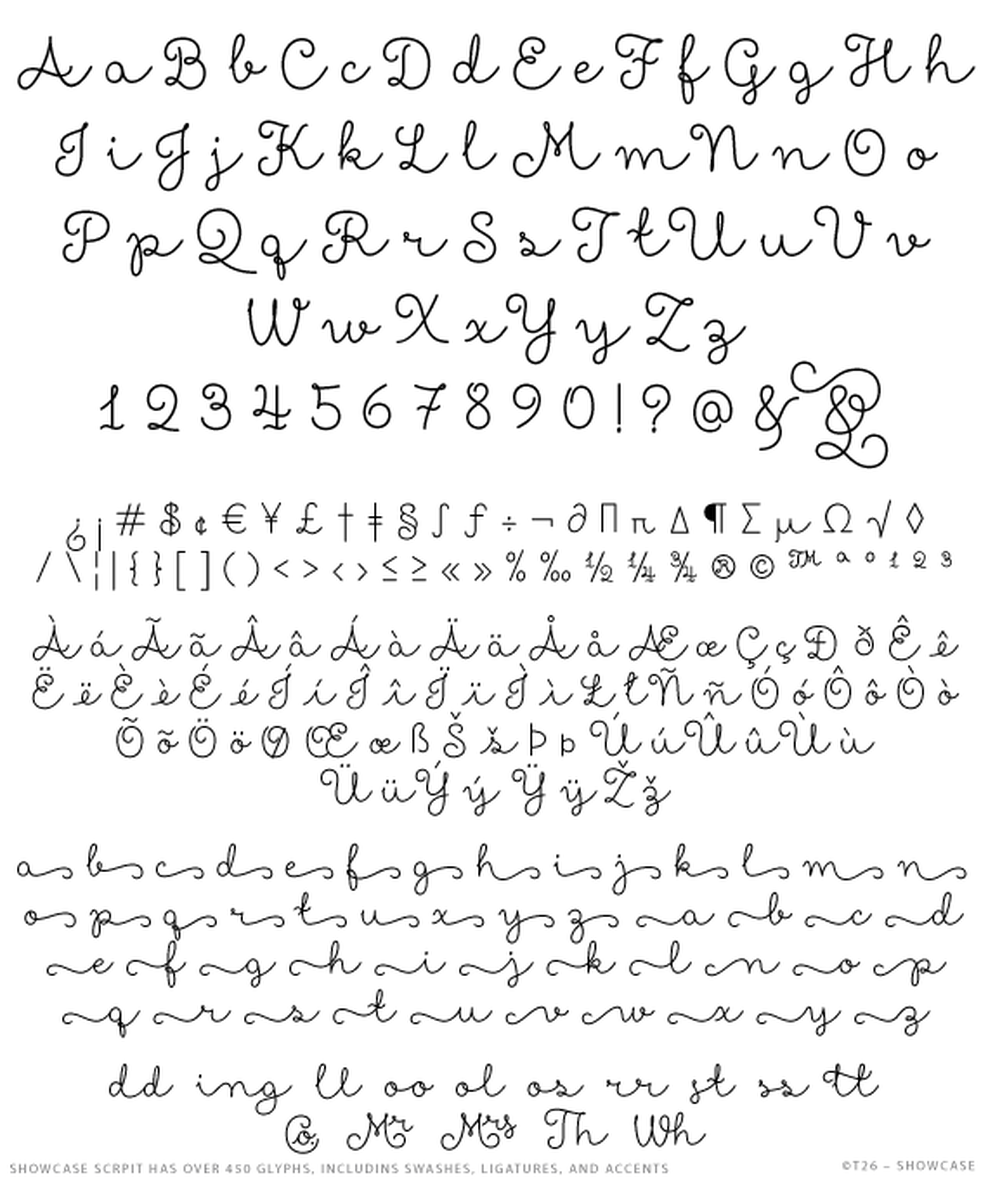 A a B b C c D d E e F f G g H h
I i J j K k L l M m N n O o
P p Q q R r S s T t U u V v
W w X x Y y Z z
1 2 3 4 5 6 7 8 9 0 ! ? @ & &
¿ ¡ # $ ¢ € ¥ £ † ‡ § ∫ ƒ ÷ ¬ ∂ ∏ π ∆ ¶ ∑ µ Ω √ ◊
/ \ ¦ | { } [ ] ( ) < > ‹ › ≤ ≥ « » % ‰ ½ ¼ ¾ ® © ™ ª º ¹ ² ³
À á Ã ã Â â Á à Ä ä Å å Æ æ Ç ç Đ ð Ê ê
Ë ë È è É é Í í Î î Ï ï Ì ì Ł ł Ñ ñ Ó ó Ô ô Ò ò
Õ õ Ö ö Ø Œ œ ß Š š Þ þ Ú ú Û û Ù ù
Ü ü Ý ý Ÿ ÿ Ž ž
a b c d e f g h i j k l m n
o p q r t u x y z a b c d
e f g h i j k l n o p
q r s t u v w x y z
dd ing ll oo ol os rr st ss tt
Co. Mr Mrs Th Wh
SHOWCASE SCRPIT HAS OVER 450 GLYPHS, INCLUDINS SWASHES, LIGATURES, AND ACCENTS
©T26 – SHOWCASE